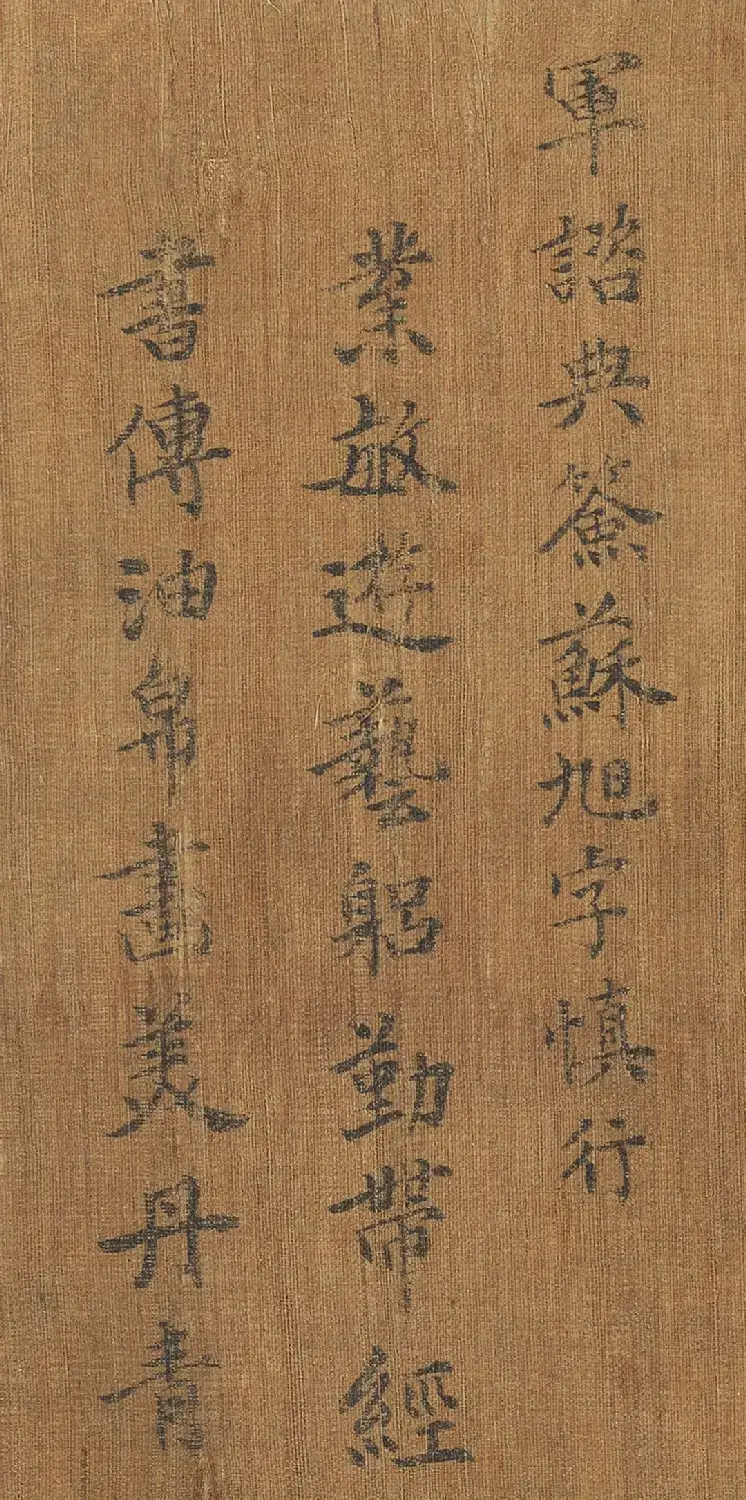 軍諮典簽蘇旭字慎行
業敏遊藝躬勤帶經
書傳油帛畫美丹青